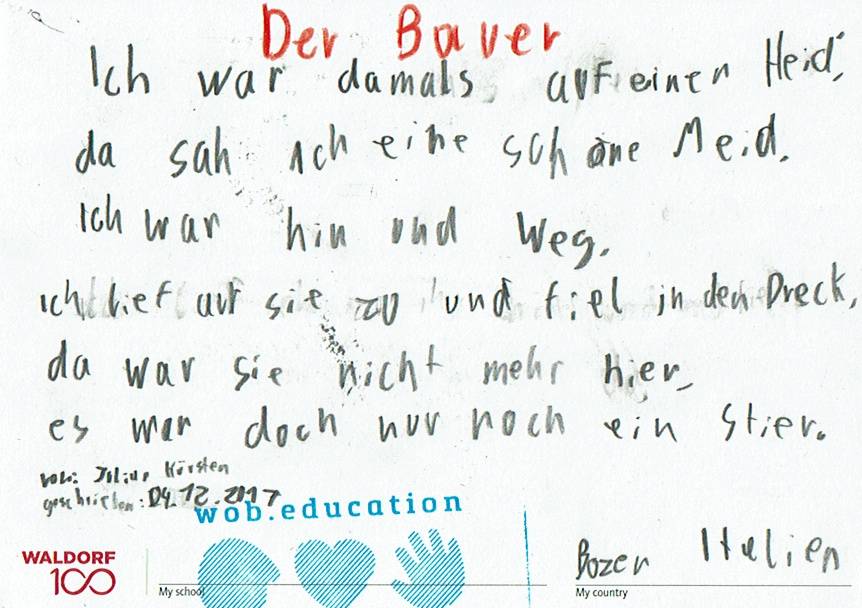 Der Bauer
Ich war damals auf einen Heid,
da sah ich eine schöne Meid.
Ich war hin und Weg,
ich lief auf sie zu und fiel in den Dreck,
da war sie nicht mehr hier,
es war doch nur noch ein Stier.
von: Julius Körsten
geschrieben: 04.12.2017
wob.education
WALDORF
100
My school
Bozen Italien
My country